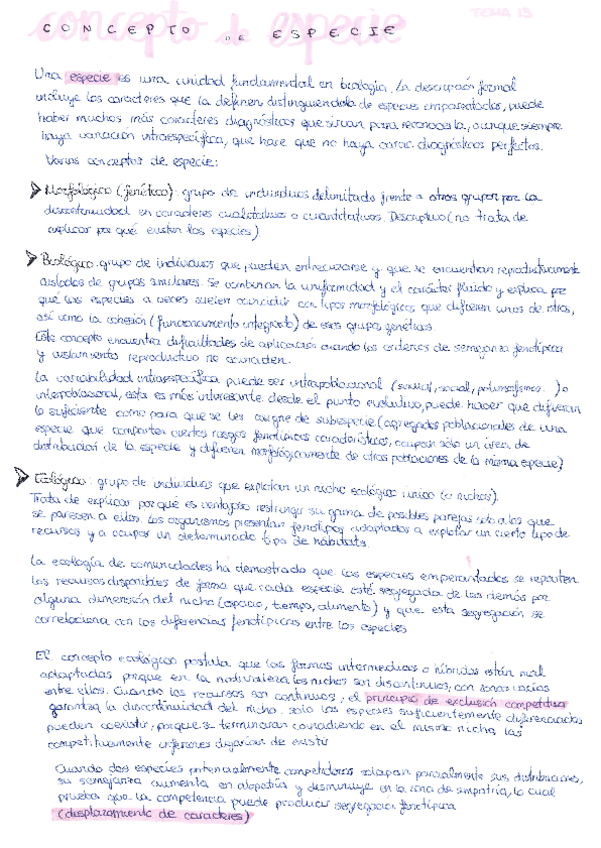 concepto de especie
TEMA 13
CONCEPTO DE ESPECIE
Una especie es una unidad fundamental en biología. La descripción formal
incluye los caracteres que la definen distinguiendola de especies emparentadas, puede
haber muchos más caracteres diagnósticos que sirvan para reconocerla, aunque siempre
haya variación intraespecífica, que hace que no haya carac. diagnósticos perfectos.
Varios conceptos de especie:
Morfológico (fenético): grupo de individuos delimitado frente a otros grupos por la
discontinuidad en caracteres cualitativos o cuantitativos. Descriptivo (no trata de
explicar por qué existen las especies)
Biológico: grupo de individuos que pueden entrecruzarse y que se encuentran reproductivamente
aislados de grupos similares. Se combinan la uniformidad y el carácter fluido y explica por
qué las especies a veces suelen coincidir con tipos morfológicos que difieren unos de otros,
así como la cohesión (funcionamiento integrado) de esos grupos genéticos.
Este concepto encuentra dificultades de aplicación cuando los criterios de semejanza fenotípica
y aislamiento reproductivo no coinciden.
La variabilidad intraespecífica puede ser intrapoblacional (sexual, social, polimorfismo...) o
interpoblacional, esta es más interesante desde el punto evolutivo, puede hacer que difieran
lo suficiente como para que se les asigne de subespecie (agregados poblacionales de una
especie que comparten ciertos rasgos fenotípicos característicos, ocupan sólo un área de
distribución de la especie y difieren morfológicamente de otras poblaciones de la misma especie)
Ecológico: grupo de individuos que explotan un nicho ecológico único (o nichos).
Trata de explicar por qué es ventajoso restringir su gama de posibles parejas solo a los que
se parecen a ellos. Los organismos presentan fenotipos adaptados a explotar un cierto tipo de
recursos y a ocupar un determinado tipo de hábitats.
La ecología de comunidades ha demostrado que las especies emparentadas se reparten
los recursos disponibles de forma que cada especie esté segregada de las demás por
alguna dimensión del nicho (espacio, tiempo, alimento) y que esta segregación se
correlaciona con las diferencias fenotípicas entre las especies
El concepto ecológico postula que las formas intermedias o híbridas están mal
adaptadas porque en la naturaleza los nichos son discontinuos, con zonas vacías
entre ellos. Cuando los recursos son continuos, el principio de exclusión competitiva
garantiza la discontinuidad del nicho. Sólo las especies suficientemente diferenciadas
pueden coexistir, porque si terminaran coincidiendo en el mismo nicho, las
competitivamente inferiores dejarían de existir
Cuando dos especies potencialmente competidoras solapan parcialmente sus distribuciones,
su semejanza aumenta en alopatría y disminuye en la zona de simpatría, lo cual
prueba que la competencia puede producir segregación fenotípica
(desplazamiento de caracteres)